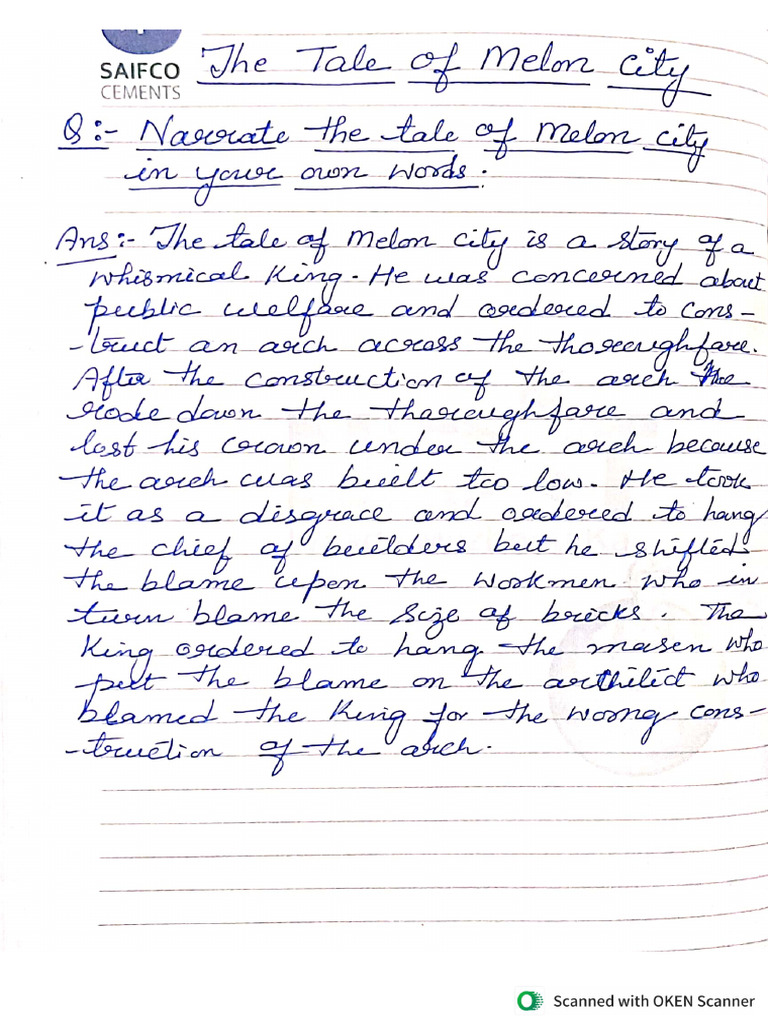 SAIFCO
CEMENTS
The Tale of Melon City
Q:- Narrate the tale of Melon city
in your own words.
Ans:- The tale of Melon city is a story of a
whismical King. He was concerned about
public welfare and ordered to cons-
-truct an arch across the thoroughfare.
After the construction of the arch he
rode down the thoroughfare and
lost his crown under the arch because
the arch was built too low. He took
it as a disgrace and ordered to hang
the chief of builders but he shifted
the blame upon the workmen who in
turn blame the size of bricks. The
King ordered to hang the masen who
put the blame on the architict who
blamed the King for the worng cons-
-truction of the arch.
Scanned with OKEN Scanner